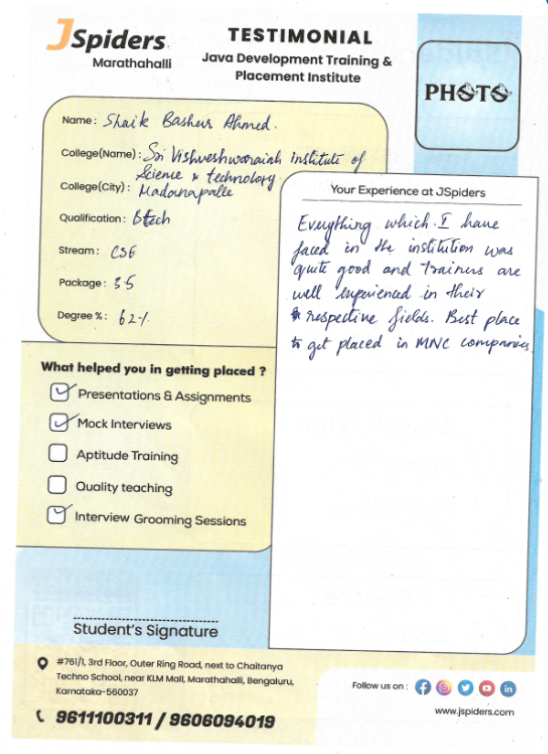 JSpiders
Marathahalli
TESTIMONIAL
Java Development Training &
Placement Institute
PHOTO
Name : Shaik Basheer Ahmed.
College(Name) : Sri Vishveshwaraiah institute of
Science & technology
College(City) : Madanapalle
Qualification : Btech
Stream : CSE
Package : 3.5
Degree % : 62%
What helped you in getting placed ?
Presentations & Assignments
Mock Interviews
Aptitude Training
Quality teaching
Interview Grooming Sessions
Your Experience at JSpiders
Everything which I have
faced in the institution was
quite good and trainers are
well experienced in their
respective fields. Best place
to get placed in MNC companies.
Student's Signature
#761/1, 3rd Floor, Outer Ring Road, next to Chaitanya
Techno School, near KLM Mall, Marathahalli, Bengaluru,
Karnataka-560037
9611100311 / 9606094019
Follow us on :
www.jspiders.com